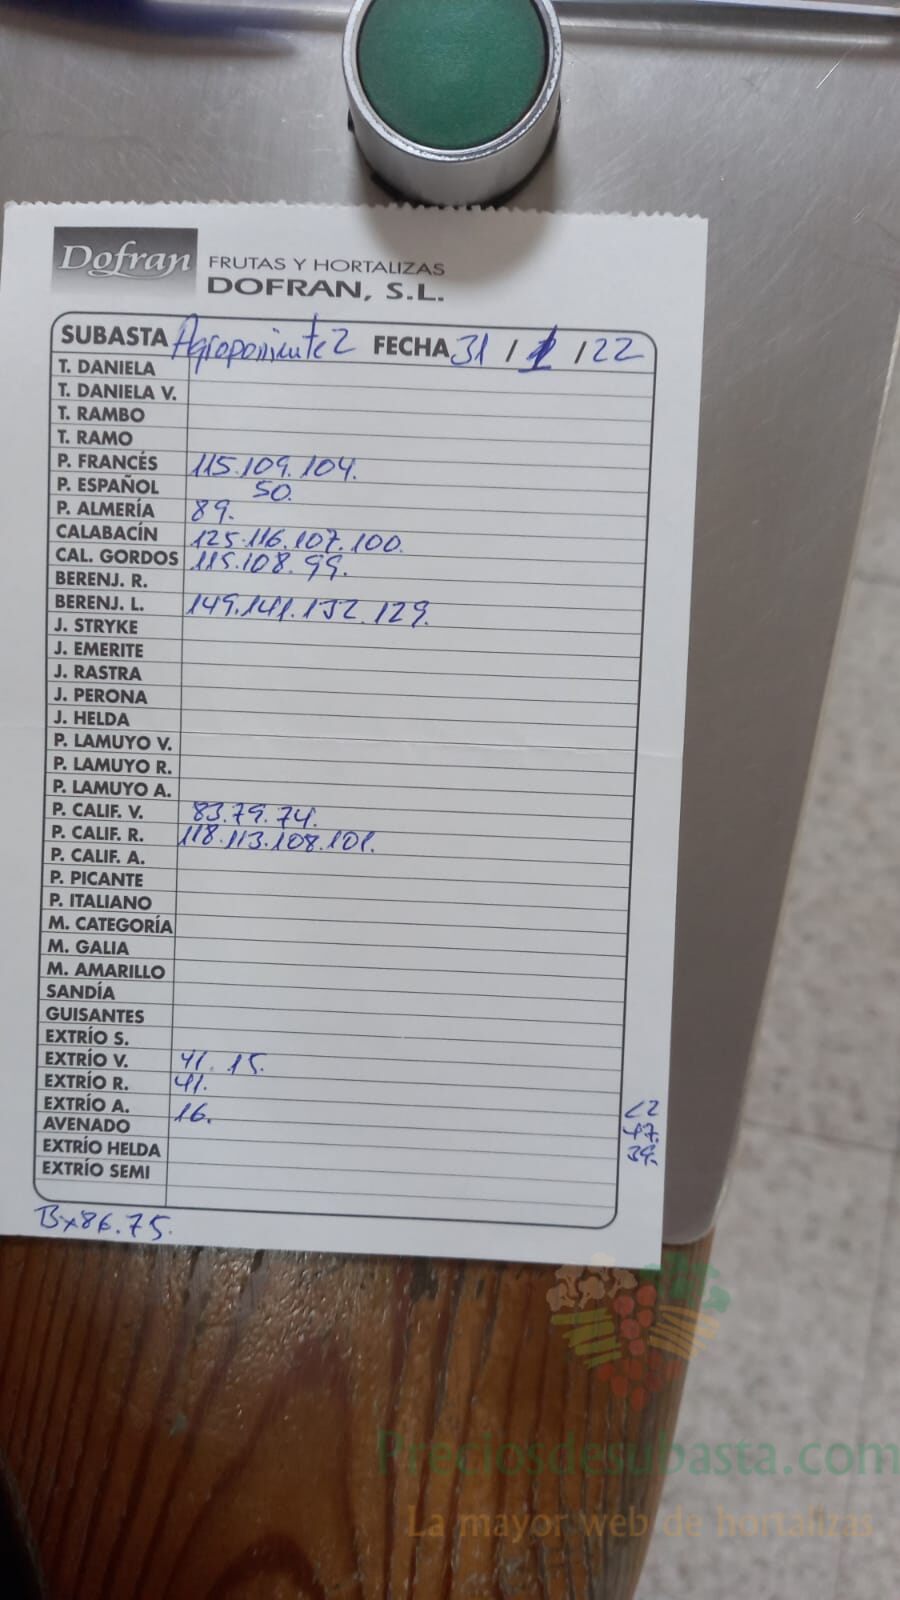 Dofran FRUTAS Y HORTALIZAS
DOFRAN, S.L.
SUBASTA Agroponiente 2 FECHA 31 / 1 / 22
T. DANIELA
T. DANIELA V.
T. RAMBO
T. RAMO
P. FRANCÉS 115.109.104.
P. ESPAÑOL 50.
P. ALMERÍA 89.
CALABACÍN 125.116.107.100.
CAL. GORDOS 115.108.99.
BERENJ. R.
BERENJ. L. 149.141.132.129.
J. STRYKE
J. EMERITE
J. RASTRA
J. PERONA
J. HELDA
P. LAMUYO V.
P. LAMUYO R.
P. LAMUYO A.
P. CALIF. V. 83.79.74.
P. CALIF. R. 118.113.108.101.
P. CALIF. A.
P. PICANTE
P. ITALIANO
M. CATEGORÍA
M. GALIA
M. AMARILLO
SANDÍA
GUISANTES
EXTRÍO S.
EXTRÍO V. 41. 15.
EXTRÍO R. 41.
EXTRÍO A. 16.
AVENADO 47.
EXTRÍO HELDA 39.
EXTRÍO SEMI
Bx86.75.
Preciosdesubasta.com
La mayor web de hortalizas